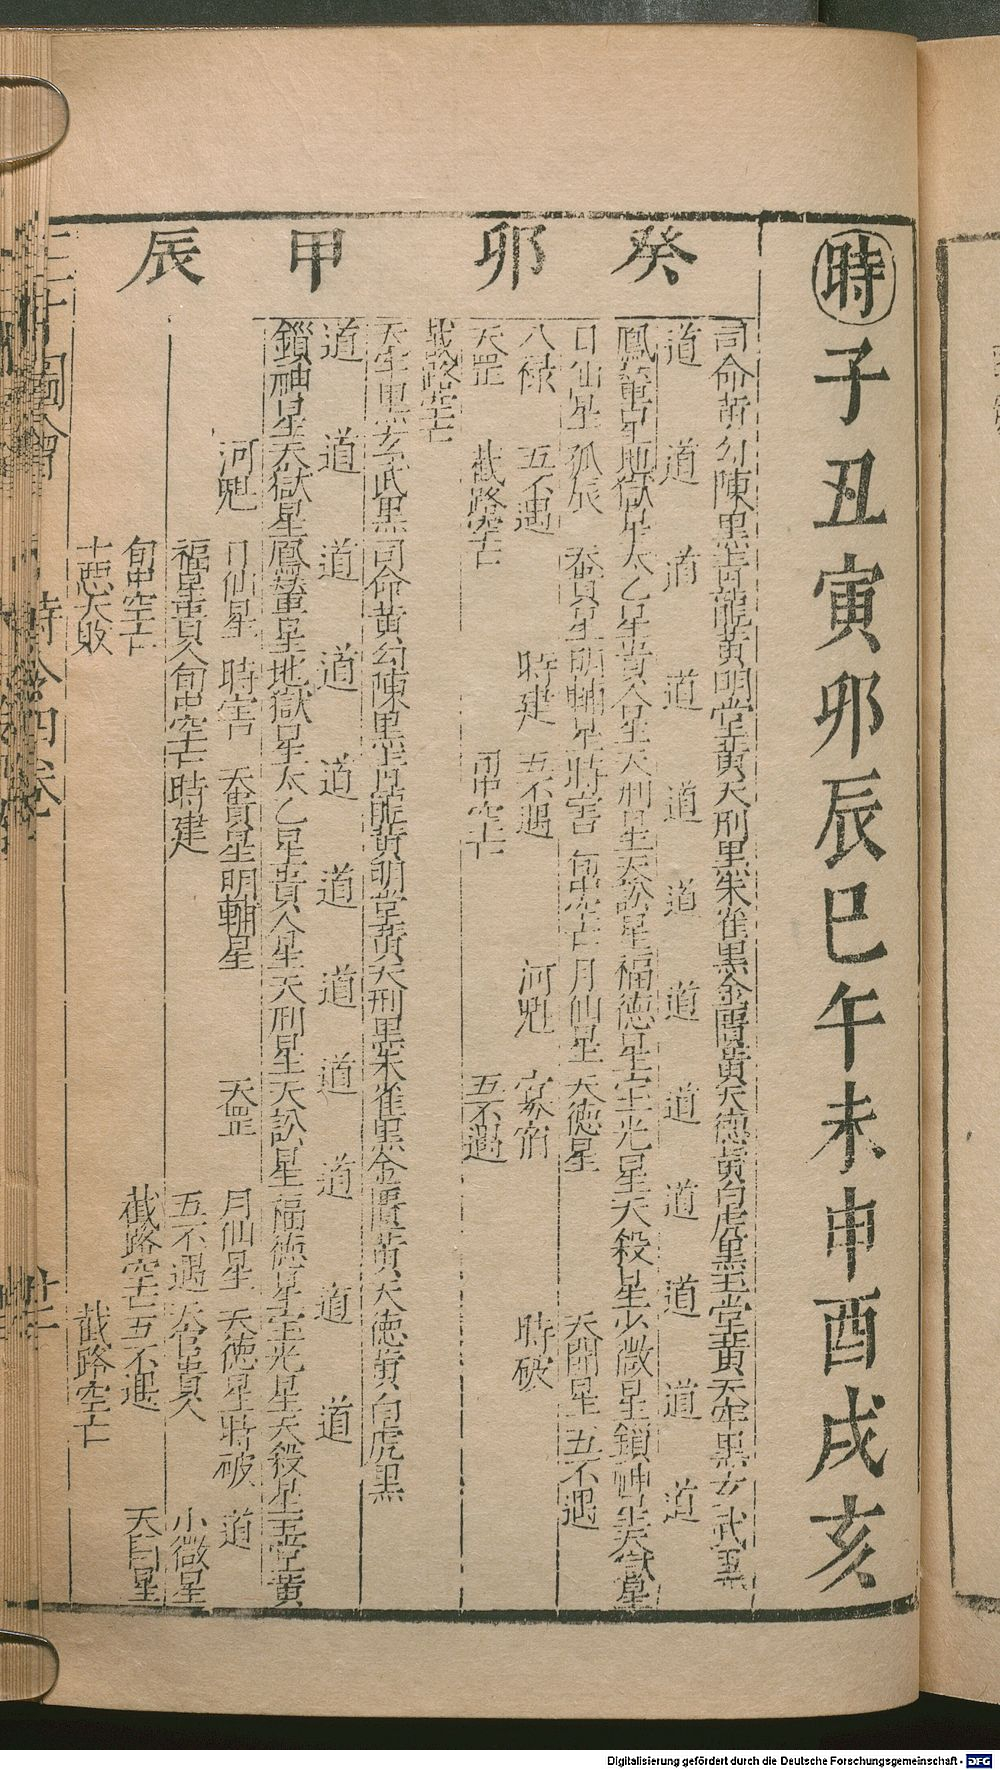 時子丑寅卯辰巳午未申酉戌亥
癸卯
司命黃勾陳黑青龍黃明堂黃天刑黑朱雀黑金匱黃天德黃白虎黑玉堂黃天牢黑玄武黑
道道道道道道道道道道道道
鳳輦星地獄星太乙星貴人星天刑星天訟星福德星宝光星天殺星少微星鎖神星天獄星
日仙星孤辰天貴星明輔星時害旬中空亡月仙星天德星天開星五不遇
八祿五不遇時建五不遇河魁寡宿時破
天罡截路空亡旬中空亡五不遇
截路空亡
甲辰
天牢黑玄武黑司命黃勾陳黑青龍黃明堂黃天刑黑朱雀黑金匱黃天德黃白虎黑
道道道道道道道道道道道
鎖神星天獄星鳳輦星地獄星太乙星貴人星天刑星天訟星福德星宝光星天殺星玉堂黃
河魁日仙星時害天貴星明輔星天罡月仙星天德星時破道
福星貴人旬中空亡時建五不遇天官貴人小微星
旬中空亡截路空亡五不遇天開星
十惡大敗截路空亡
三才圖會
時令四卷
Digitalisierung gefördert durch die Deutsche Forschungsgemeinschaft - DFG